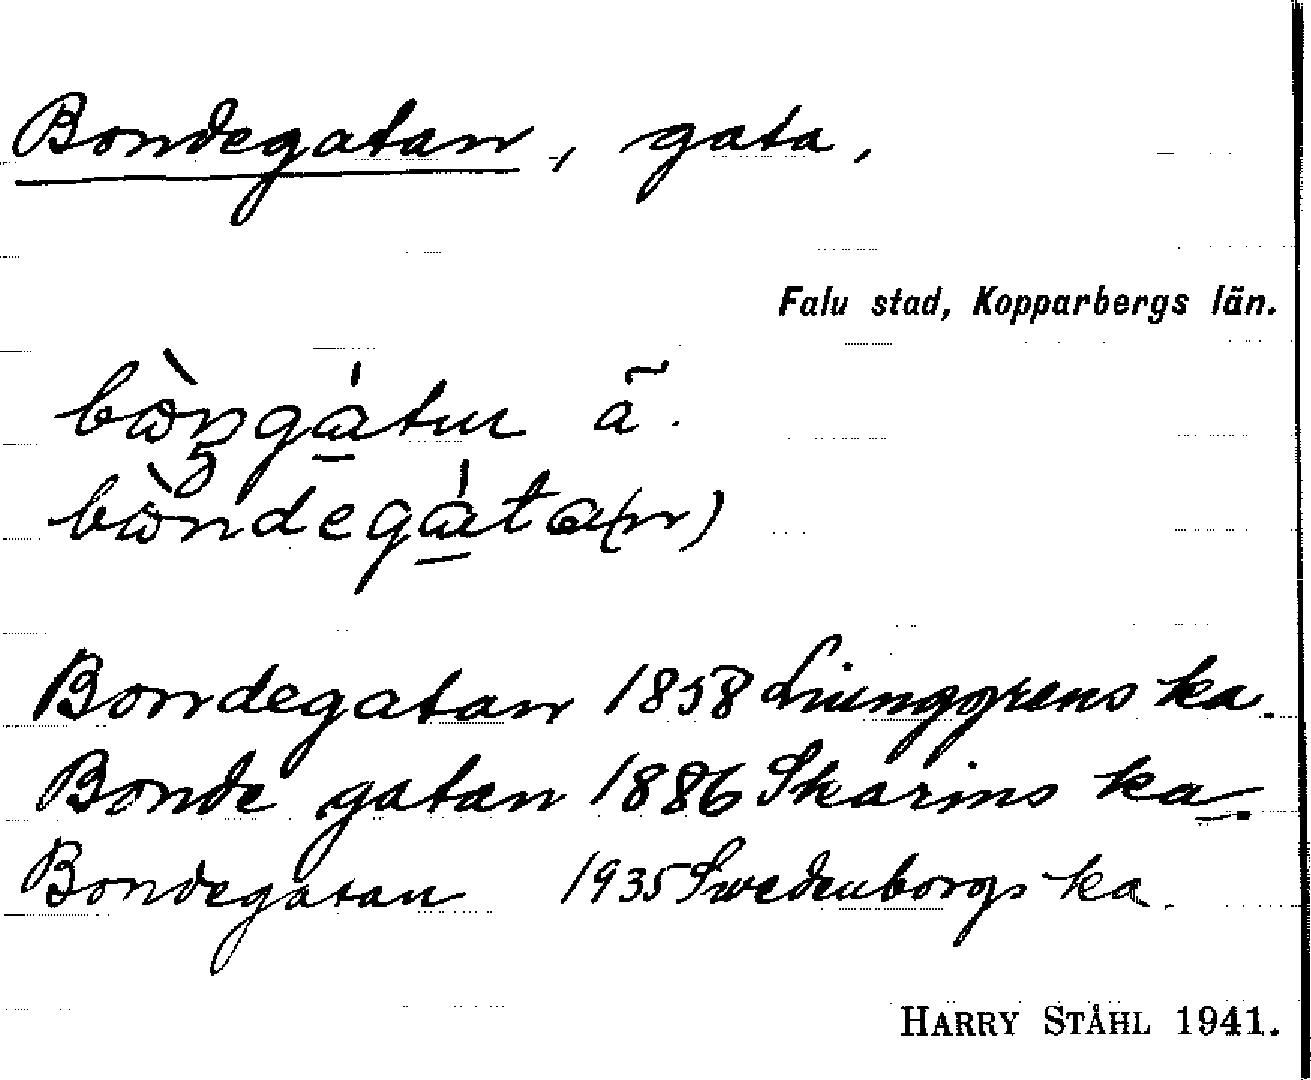 Bondegatan, gata,
Falu stad, Kopparbergs län.
bòngátur ã.
bòndegáta(n)
Bondegatan 1858 Liunggrens ka.
Bonde gatan 1886 Skarins ka.
Bondegatan 1935 Swedenborgs ka.
HARRY STÅHL 1941.